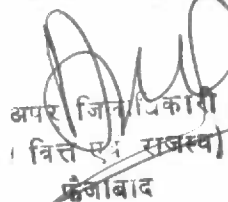 अपर जिलाधिकारी
( वित्त एवं राजस्व)
फैजाबाद